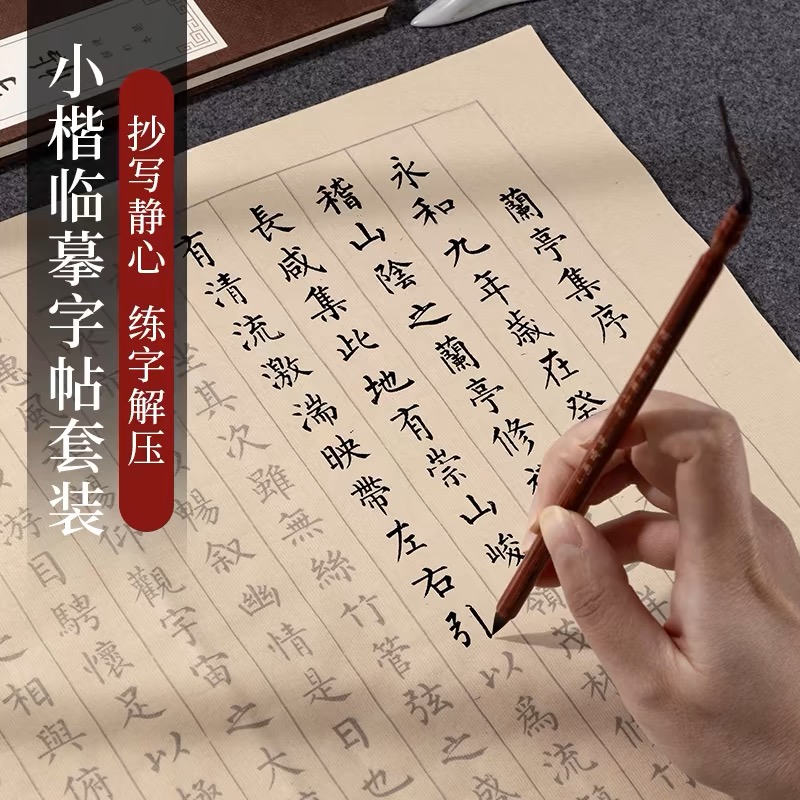 小楷临摹字帖套装
抄写静心 练字解压
蘭亭集序
永和九年歲在癸
稽山陰之蘭亭修
長咸集此地有崇山峻領茂林修竹
有清流激湍映帶左右引以為流
坐其次雖無絲竹管弦之盛
暢叙幽情是日也
惠風
仰觀宇宙之大
游目騁懷足以極
之相與俯